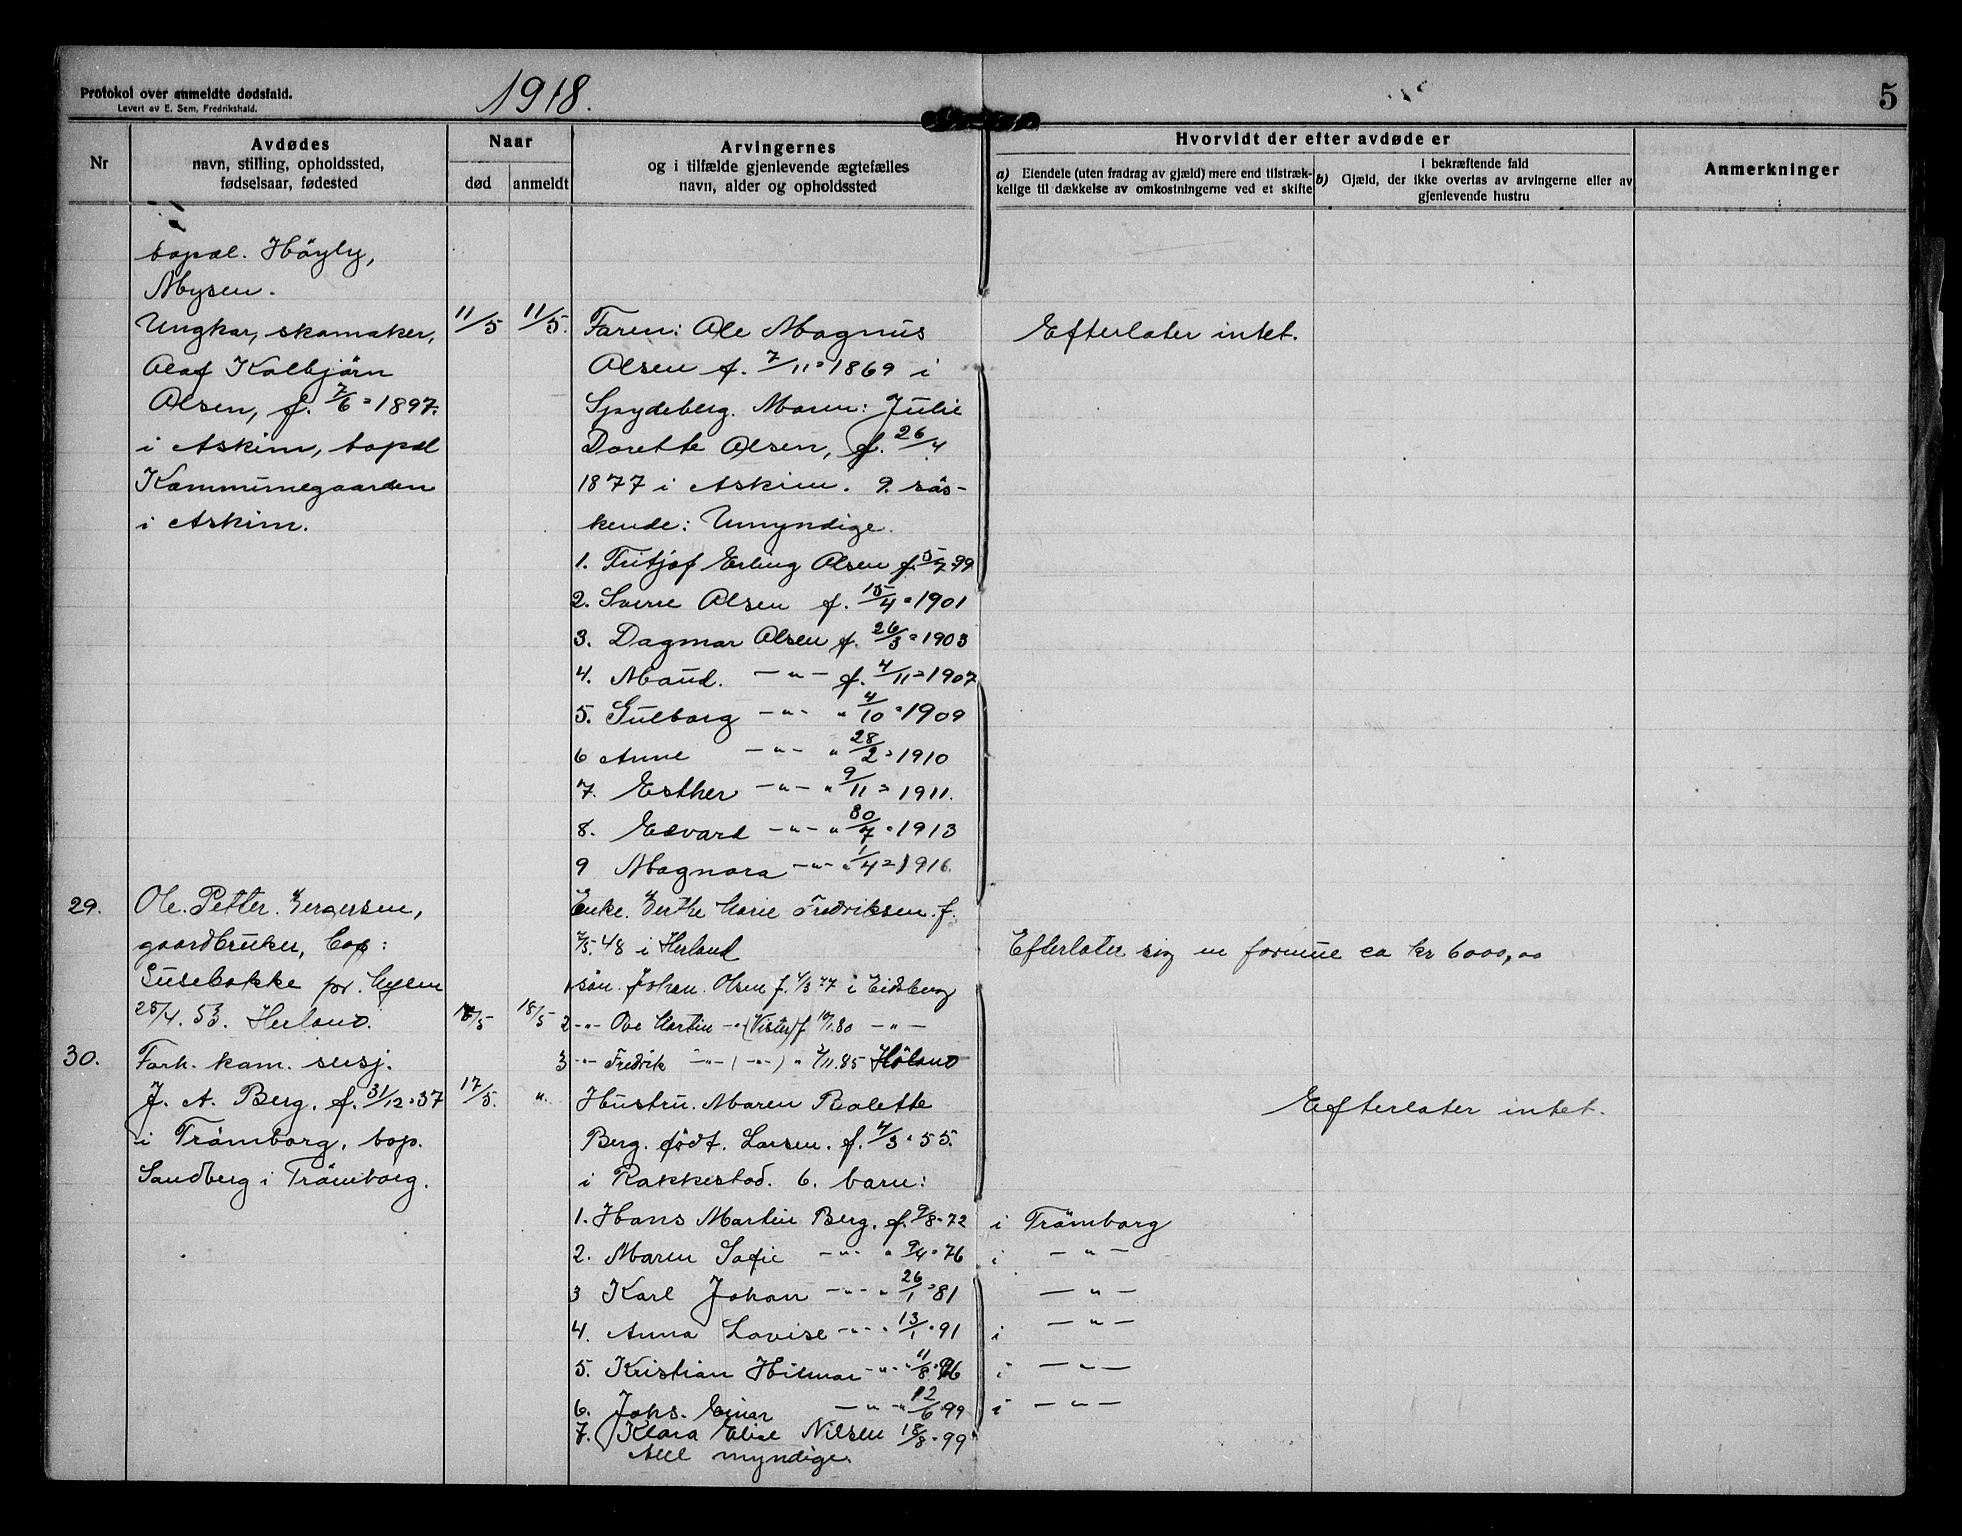 Protokol over anmeldte dødsfald.
Levert av E. Sem, Fredrikshald.
1918.
5
Nr
Avdødes
navn, stilling, opholdssted,
fødselsaar, fødested
Naar
død
anmeldt
Arvingernes
og i tilfælde gjenlevende ægtefælles
navn, alder og opholdssted
Hvorvidt der efter avdøde er
a) Eiendele (uten fradrag av gjæld) mere end tilstræk-
kelige til dækkelse av omkostningerne ved et skifte
i bekræftende fald
b) Gjæld, der ikke overtas av arvingerne eller av
gjenlevende hustru
Anmerkninger
bopæl. Höyby,
Mysen.
Ungkar, skomaker,
Olaf Kolbjörn
Olsen, f. 7/6=1897.
i Askim, bopæl
Kommunegaarden
i Askim.
11/5
11/5.
Faren: Ole Magnus
Olsen f. 7/11=1869 i
Spydeberg. Moren: Julie
Dorette Olsen, f. 26/4
1877 i Askim. 9. sös-
kende: Umyndige.
1. Fritjof Erling Olsen f. 5/7.99
2. Sverre Olsen f. 15/4=1901
3. Dagmar Olsen f. 26/3=1903
4. Maud. — " — f. 4/11=1907
5. Gulborg — " — " 4/10=1909
6 Anne — " — " 28/2=1910
7. Esther — " — " 9/11=1911.
8. Edvard — " — " 30/7=1913
9 Magnora — " — " 1/4=1916.
Efterlater intet.
29.
Ole. Petter. Bergersen,
gaardbruker, bop:
Susebakke pr. Mysen
25/4. 53. Herland.
18/5
18/5
Enke. Berthe Marie Fredriksen. f.
7/5. 48 i Herland
1 sön. Johan. Olsen f. 4/3 77 i Eidsberg
2 — " — Ove Martin — " — (Vister) f. 10/1.80 — " —
3 — " — Fredrik — " — ( — " — ) " 2/11.85 Höland
Efterlater sig en formue ca kr 6000,00
30.
Forh. kom. sersj.
J. A. Berg. f. 31/12=37
i Trömborg, bop.
Sandberg i Trömborg.
17/5.
"
Hustru. Maren Bolette
Berg. födt. Larsen. f. 4/3=55.
i Rakkestad. 6. barn:
1. Hans Martin Berg. f. 9/8=72 i Trömborg
2. Maren Sofie — " — " 9/4=76 i — " —
3 Karl Johan — " — " 26/1=81 — " —
4. Anna Lovise — " — " 13/1=91 i — " —
5. Kristian Hilmar — " — " 11/8=96 i — " —
6. Johs. Einar — " — " 12/6=99 i — " —
7. Klara Elise Nilsen 18/8=99
Alle myndige.
Efterlater intet.